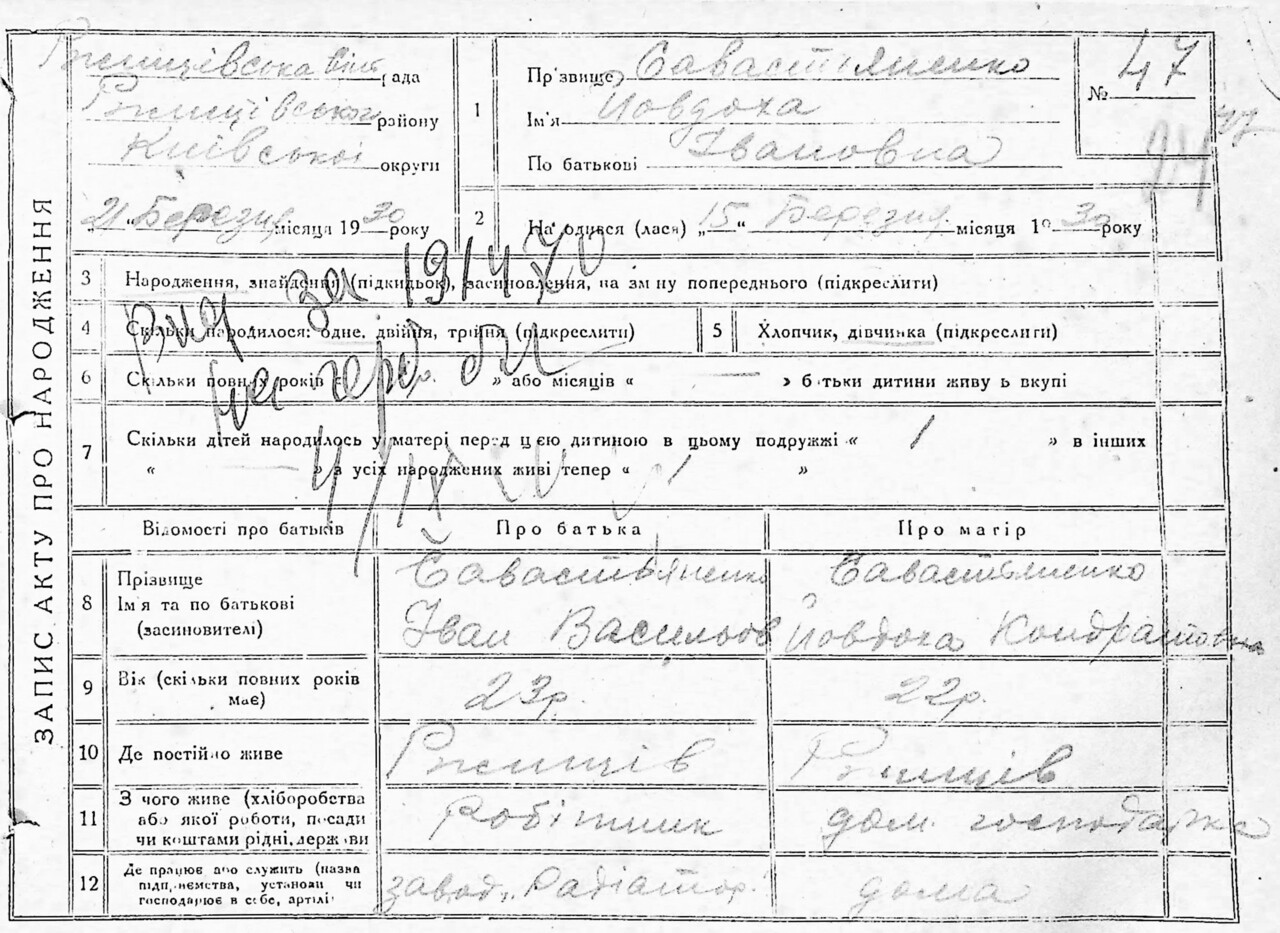 ЗАПИС АКТУ ПРО НАРОДЖЕННЯ
Ржищівська рада
Ржищівського району
Київської округи
„21“ Березня місяця 1930 року
1
Пр'звище Савастьяненко
Ім'я Йовдоха
По батькові Івановна
№ 47
24
2
На одився (лася) „15“ Березня місяця 1930 року
3 Народження, знайдення (підкидьок), засиновлення, на зм ну попереднього (підкреслити)
4 Скільки народилося: одне, двійня, трійня (підкреслити)
5 Хлопчик, дівчинка (підкреслити)
6 Скільки повних років « р. » або місяців « — » батьки дитини живу ь вкупі
7 Скільки дітей народилось у матері перед цією дитиною в цьому подружжі « 1 » в інших
« — » а усіх народжених живі тепер « »
Відомості про батьків Про батька Про матір
8 Прізвище Савастьяненко Савастьяненко
Ім'я та по батькові Іван Васильов Йовдоха Кондратовна
(засиновителі)
9 Вік (скільки повних років має) 23р. 22р.
10 Де постійно живе Ржищів Ржищів
11 З чого живе (хліборобства
або якої роботи, посади Робітник дом. господарка
чи коштами рідні, держави
12 Де працює або служить (назва
підп.иємства, установи чи завод „Радіатор“ дома
господарює в себе, артілі